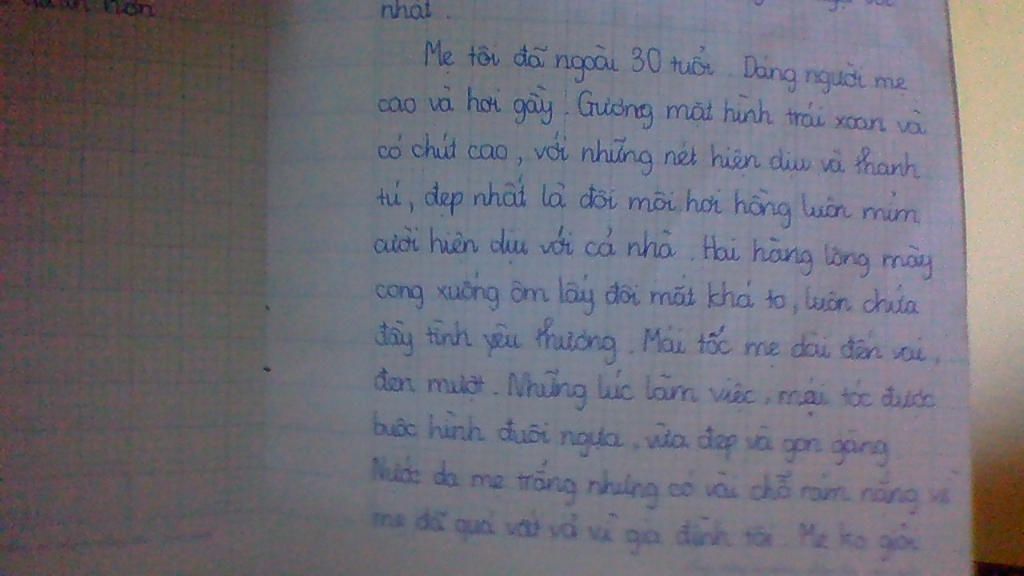 hơn
nhất.
Mẹ tôi đã ngoài 30 tuổi. Dáng người mẹ
cao và hơi gầy. Gương mặt hình trái xoan và
có chút cao, với những nét hiền dịu và thanh
tú, đẹp nhất là đôi môi hơi hồng luôn mỉm
cười hiền dịu với cả nhà. Hai hàng lông mày
cong xuống ôm lấy đôi mắt khá to, luôn chứa
đầy tình yêu thương. Mái tốc mẹ dài đến vai,
đen mượt. Những lúc làm việc, mái tóc được
buộc hình đuôi ngựa, vừa đẹp và gọn gàng
Nước da mẹ trắng nhưng có vài chỗ rám nắng vì
mẹ đã quá vất vả vì gia đình tôi. Mẹ ko giỏi